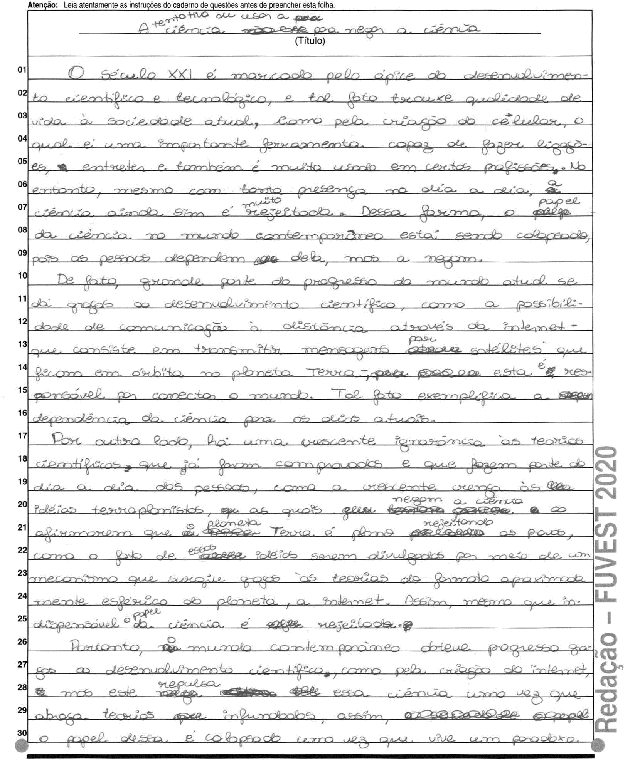 Atenção: Leia atentamente as instruções do caderno de questões antes de preencher esta folha.
A tentativa ou usar a
ciência pra negar a ciência
(Título)
01 O século XXI é marcado pelo ápice do desenvolvimen-
02 to científico e tecnológico, e tal fato trouxe qualidade de
03 vida à sociedade atual, como pela criação do celular, o
04 qual é uma importante ferramenta capaz de fazer ligaçõ-
05 es, entreter e também é muito usado em certas profissões. No
06 entanto, mesmo com tanta presença no dia a dia, a
07 ciência ainda sim é muito rejeitada. Dessa forma, o papel
08 da ciência no mundo contemporâneo está sendo colapsado,
09 pois as pessoas dependem dela, mas a negam.
10 De fato, grande parte do progresso do mundo atual se
11 dá graças ao desenvolvimento científico, como a possibili-
12 dade de comunicação à distância através da internet -
13 que consiste em transmitir mensagens por satélites que
14 ficam em órbita no planeta Terra -, esta é res
15 ponsável por conectar o mundo. Tal fato exemplifica a
16 dependência da ciência para os dias atuais.
17 Por outro lado, há uma crescente ignorância às teorias
18 científicas, que já foram comprovadas e que fazem parte do
19 dia a dia das pessoas, como a crescente crença às
20 idéias terraplanistas, as quais negam a ciência ao
21 afirmarem que o planeta Terra é plano rejeitando as provas,
22 como o fato de essas idéias serem divulgadas por meio de um
23 mecanismo que surgiu graças às teorias do formato aproximada
24 mente esférico do planeta, a internet. Assim, mesmo que in-
25 dispensável o papel da ciência é rejeitado.
26 Portanto, o mundo contemporâneo obteve progresso gra-
27 ças ao desenvolvimento científico, como pela criação da internet,
28 mas este repulsa essa ciência uma vez que
29 abraça teorias infundadas, assim,
30 o papel dessa é colapsado uma vez que vive um paradoxo
Redação – FUVEST 2020